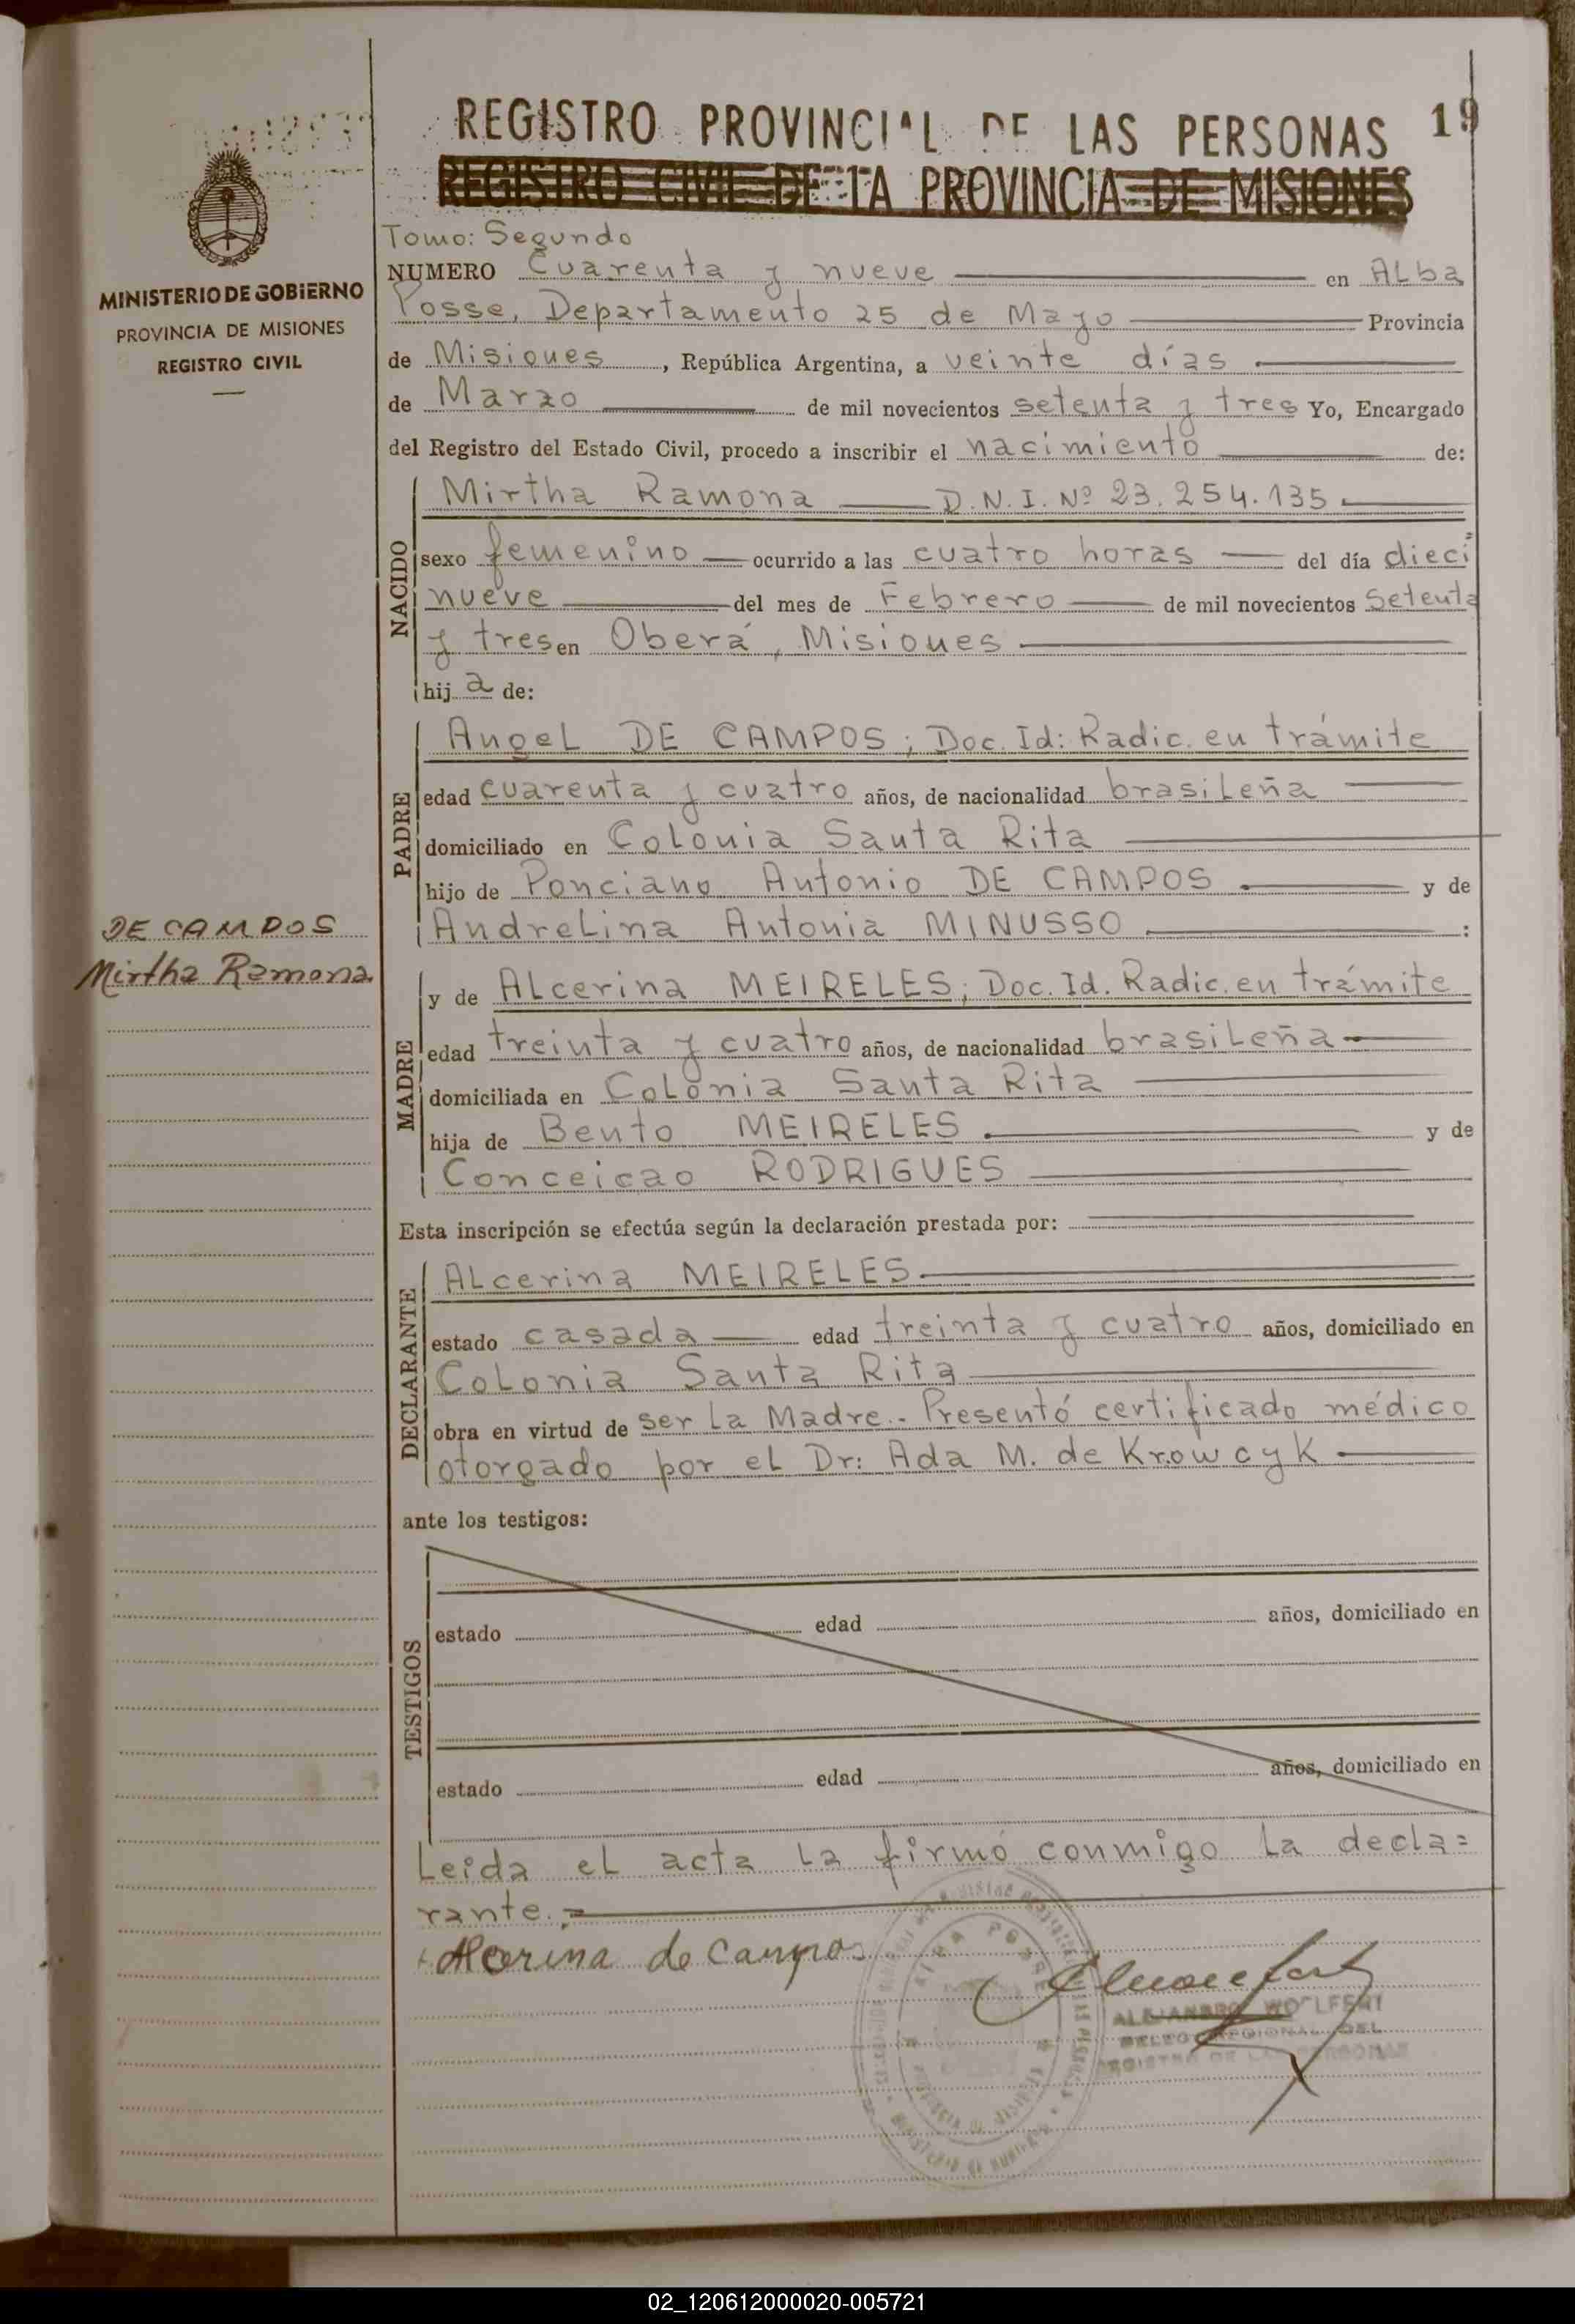 REGISTRO PROVINCIAL DE LAS PERSONAS 19
REGISTRO CIVIL DE LA PROVINCIA DE MISIONES
MINISTERIO DE GOBIERNO
PROVINCIA DE MISIONES
REGISTRO CIVIL
Tomo: Segundo
NUMERO Cuarenta y nueve en ALba
Posse, Departamento 25 de Mayo Provincia
de Misiones, República Argentina, a veinte días
de Marzo de mil novecientos setenta y tres Yo, Encargado
del Registro del Estado Civil, procedo a inscribir el nacimiento de:
NACIDO
Mirtha Ramona D.N.I. Nº 23.254.135
sexo femenino ocurrido a las cuatro horas del día dieci
nueve del mes de Febrero de mil novecientos setenta
y tres en Oberá, Misiones
hija de:
PADRE
AngeL DE CAMPOS; Doc. Id: Radic. en trámite
edad cuarenta y cuatro años, de nacionalidad brasiLeña
domiciliado en CoLonia Santa Rita
hijo de Ponciano Antonio DE CAMPOS y de
AndreLina Antonia MINUSSO :
DE CAMPOS
Mirtha Ramona
MADRE
y de ALcerina MEIRELES; Doc. Id. Radic. en trámite
edad treinta y cuatro años, de nacionalidad brasiLeña
domiciliada en CoLonia Santa Rita
hija de Bento MEIRELES y de
Conceicao RODRIGUES
Esta inscripción se efectúa según la declaración prestada por:
DECLARANTE
ALcerina MEIRELES
estado casada edad treinta y cuatro años, domiciliado en
CoLonia Santa Rita
obra en virtud de ser La Madre.- Presentó certificado médico
otorgado por eL Dr: Ada M. de Krowcyk
ante los testigos:
TESTIGOS
estado edad años, domiciliado en
estado edad años, domiciliado en
Leida eL acta La firmó conmigo La decla=
rante.=
Alcerina de Campos
ALBA POSSE
ALEJANDRO
DEL
REGISTRO DE LAS PERSONAS
02_120612000020-005721